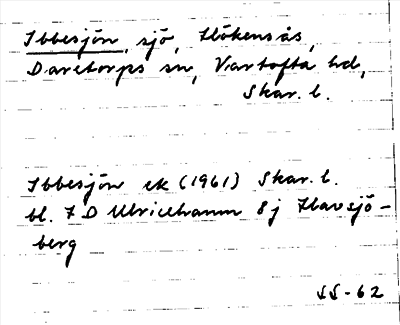 Ibbesjön, sjö, Hökensås,
Daretorps sn, Vartofta hd,
Skar. l.
Ibbesjön ek (1961) Skar. l.
bl. 7 D Ulricehamn 8 j Havsjö-
berg
SS-62